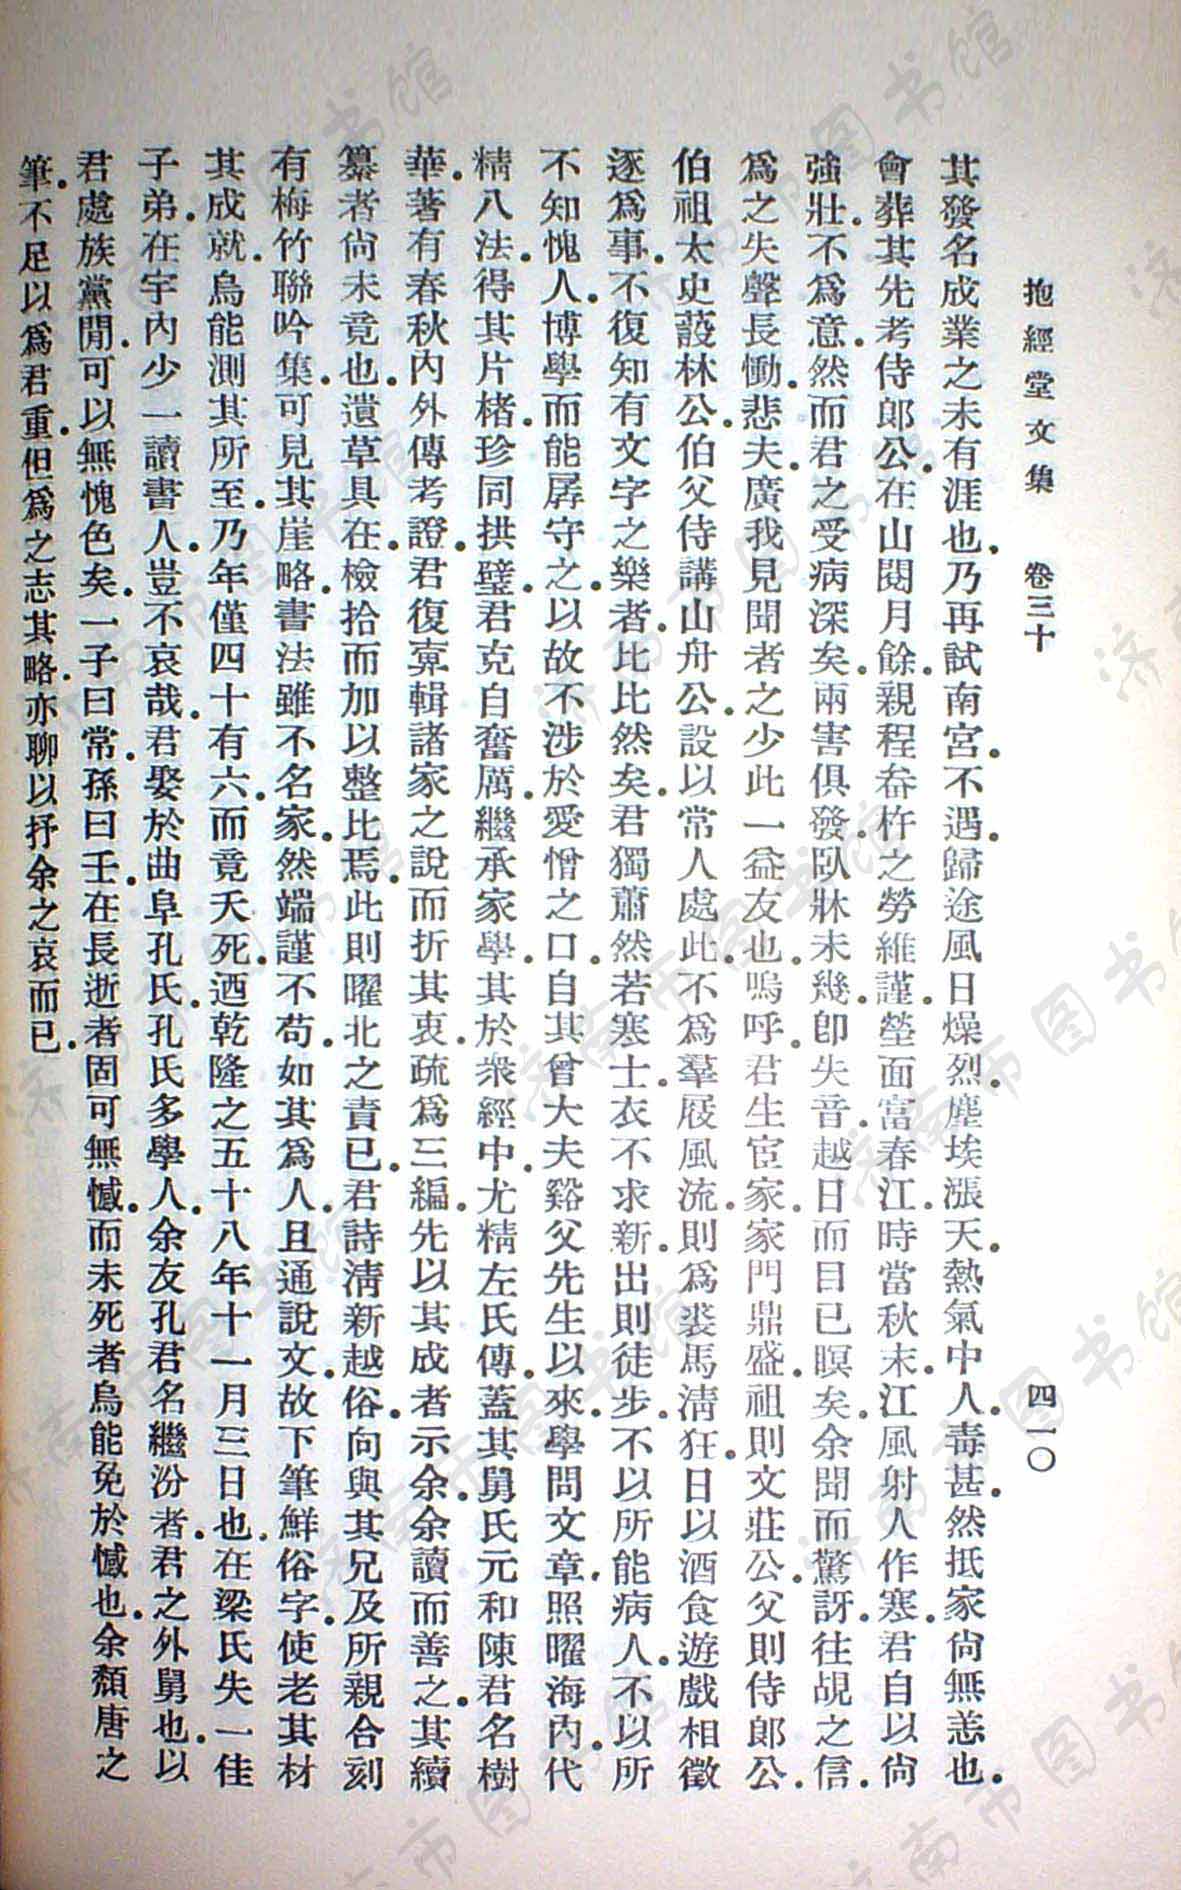 抱經堂文集　卷三十　四一〇
其發名成業之未有涯也.乃再試南宮.不遇.歸途風日燥烈.塵埃漲天.熱氣中人.毒甚.然抵家尙無恙也.
會葬其先考侍郎公.在山閱月餘.親程畚杵之勞維謹.塋面富春江.時當秋末.江風射人作寒.君自以尙
強壯.不爲意.然而君之受病深矣.兩害俱發.臥牀未幾.卽失音.越日而目已瞑矣.余聞而驚訝.往覘之信.
爲之失聲長慟.悲夫.廣我見聞者之少此一益友也.嗚呼.君生宦家.家門鼎盛.祖則文莊公.父則侍郎公.
伯祖太史蔎林公.伯父侍講山舟公.設以常人處此.不爲羣屐風流.則爲裘馬淸狂.日以酒食遊戲相徵
逐爲事.不復知有文字之樂者.比比然矣.君獨蕭然若寒士.衣不求新.出則徒步.不以所能病人.不以所
不知愧人.博學而能孱守之.以故不涉於愛憎之口.自其曾大夫谿父先生以來.學問文章.照曜海內.代
精八法.得其片楮.珍同拱璧.君克自奮厲.繼承家學.其於衆經中.尤精左氏傳.蓋其舅氏元和陳君名樹
華.著有春秋內外傳考證.君復寀輯諸家之說而折其衷.疏爲三編.先以其成者示余.余讀而善之.其續
纂者尙未竟也.遺草具在.檢拾而加以整比焉.此則曜北之責已.君詩淸新越俗.向與其兄及所親合刻
有梅竹聯吟集.可見其崖略.書法雖不名家.然端謹不苟.如其爲人.且通說文.故下筆鮮俗字.使老其材.
其成就.烏能測其所至.乃年僅四十有六.而竟夭死.迺乾隆之五十八年十一月三日也.在梁氏失一佳
子弟.在宇內少一讀書人.豈不哀哉.君娶於曲阜孔氏.孔氏多學人.余友孔君名繼汾者.君之外舅也.以
君處族黨閒.可以無愧色矣.一子曰常.孫曰壬.在長逝者固可無憾.而未死者烏能免於憾也.余頹唐之
筆.不足以爲君重.但爲之志其略.亦聊以抒余之哀而已.